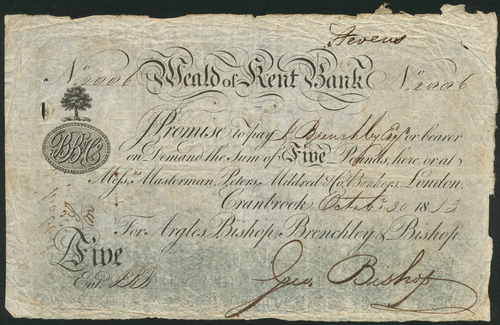 Stevens
No. 2006 Weald of Kent Bank No. 2006
BB&Co
I Promise to pay J. Brenchley Esqr. or bearer
on Demand the Sum of Five Pounds, here, or at
Messrs. Masterman, Peters, Mildred & Co. Bankers, London.
Cranbrook, Octobr. 30 1813
For Argles Bishop, Brenchley & Bishop
Five
Entd.
Geo. Bishop